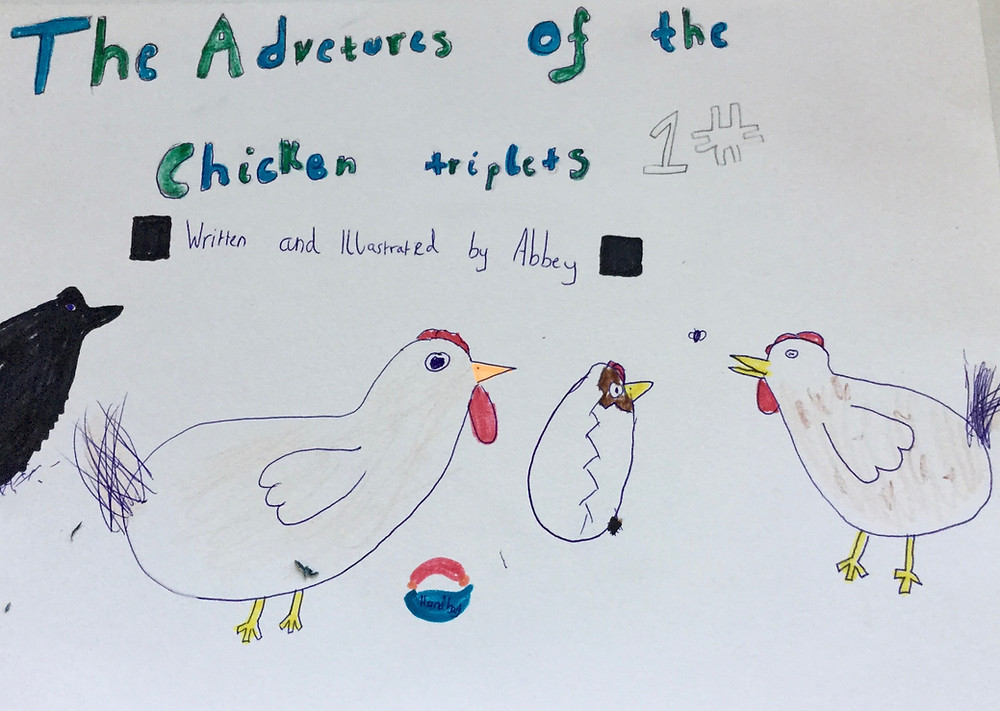 The Advetures of the
Chicken triplets 1#
Written and Illustrated by Abbey
Handbag